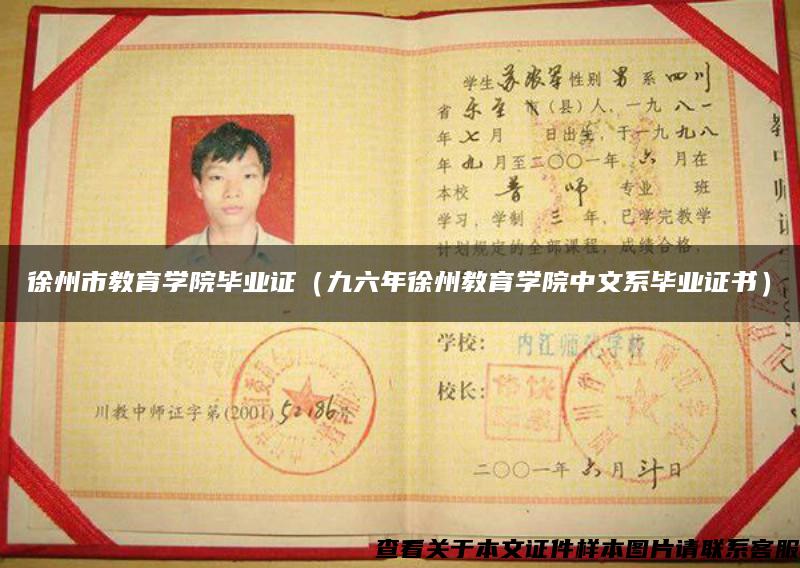 学生 苏 性别 男 系 四川
省 乐至 市（县）人，一九 八一
年 七 月 日出生，于一九 九八
年 九 月至二〇〇一年 六 月在
本校 普 师 专业 班
学习，学制 三 年，已学完教学
计划规定的全部课程，成绩合格，
徐州市教育学院毕业证（九六年徐州教育学院中文系毕业证书）
学校： 内江师范学校
校长：
川教中师证字第(2001) 52186 号
二〇〇一年 六 月 日
查看关于本文证件样本图片请联系客服